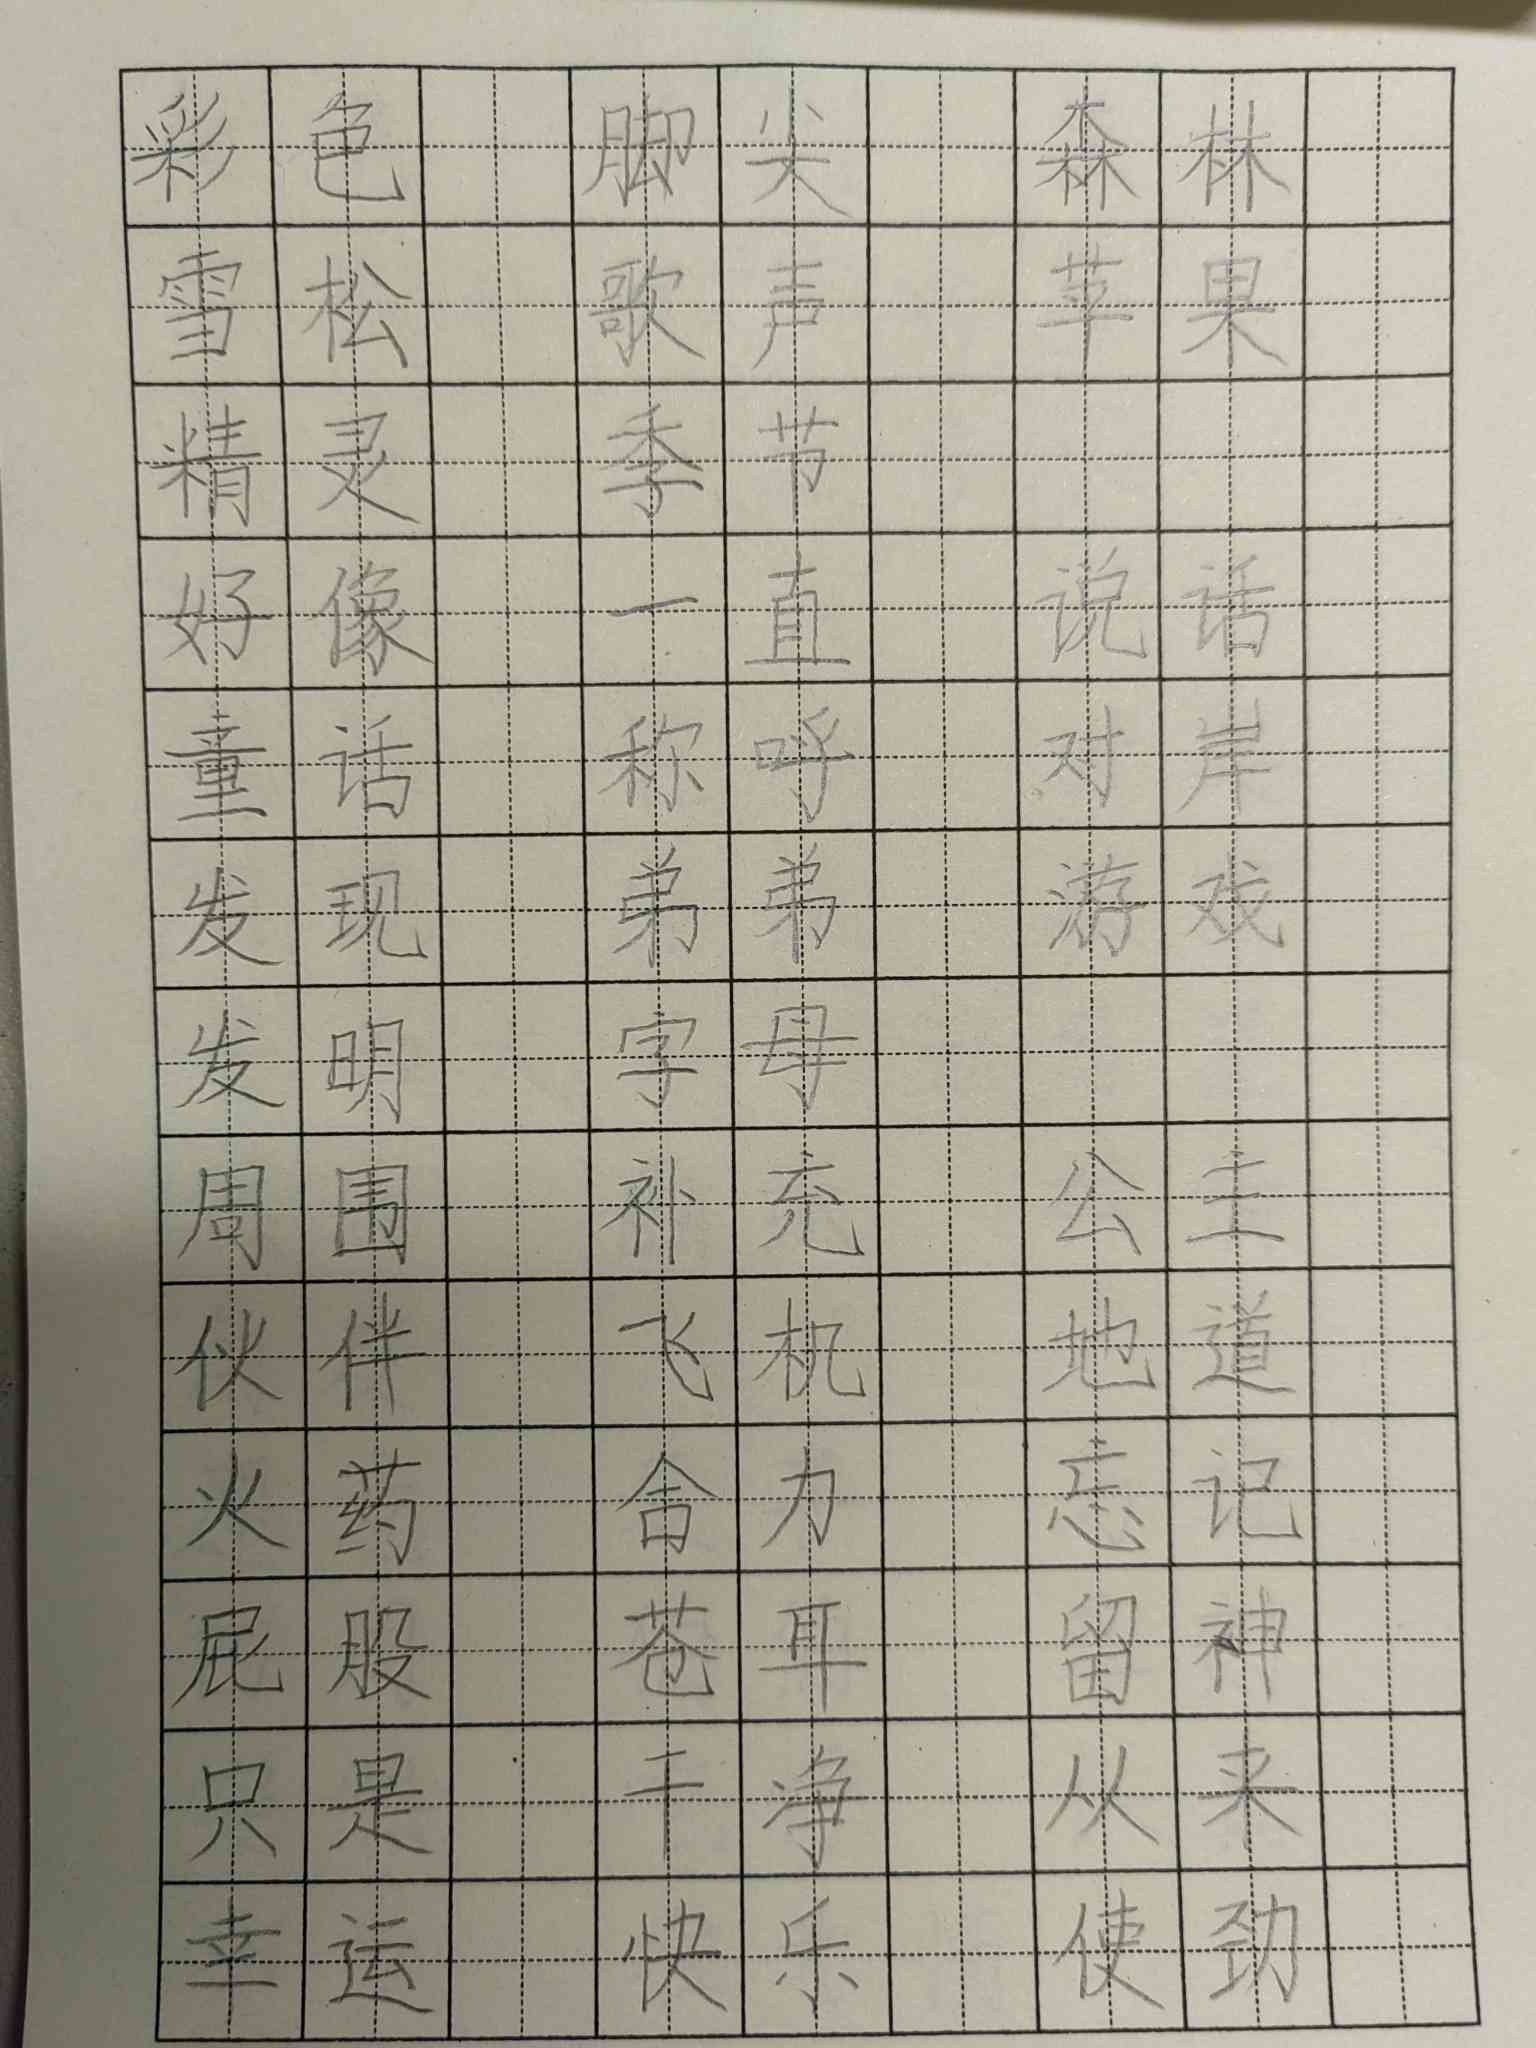 彩色 脚尖 森林
雪松 歌声 苹果
精灵 季节
好像 一直 说话
童话 称呼 对岸
发现 弟弟 游戏
发明 字母
周围 补充 公主
伙伴 飞机 地道
火药 舍力 忘记
屁股 苍耳 留神
只是 干净 从来
幸运 快乐 使劲